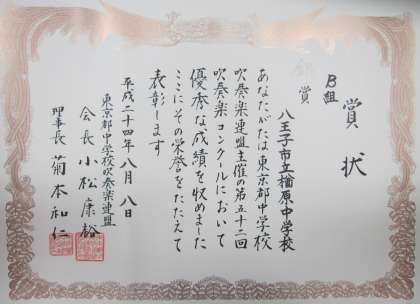 賞状
B組
銀賞
八王子市立楢原中学校
あなたがたは東京都中学校
吹奏楽連盟主催の第五十二回
吹奏楽コンクールにおいて
優秀な成績を収めました
ここにその栄誉をたたえて
表彰します
平成二十四年八月八日
東京都中学校吹奏楽連盟
会長 小松康裕
理事長 菊本和仁